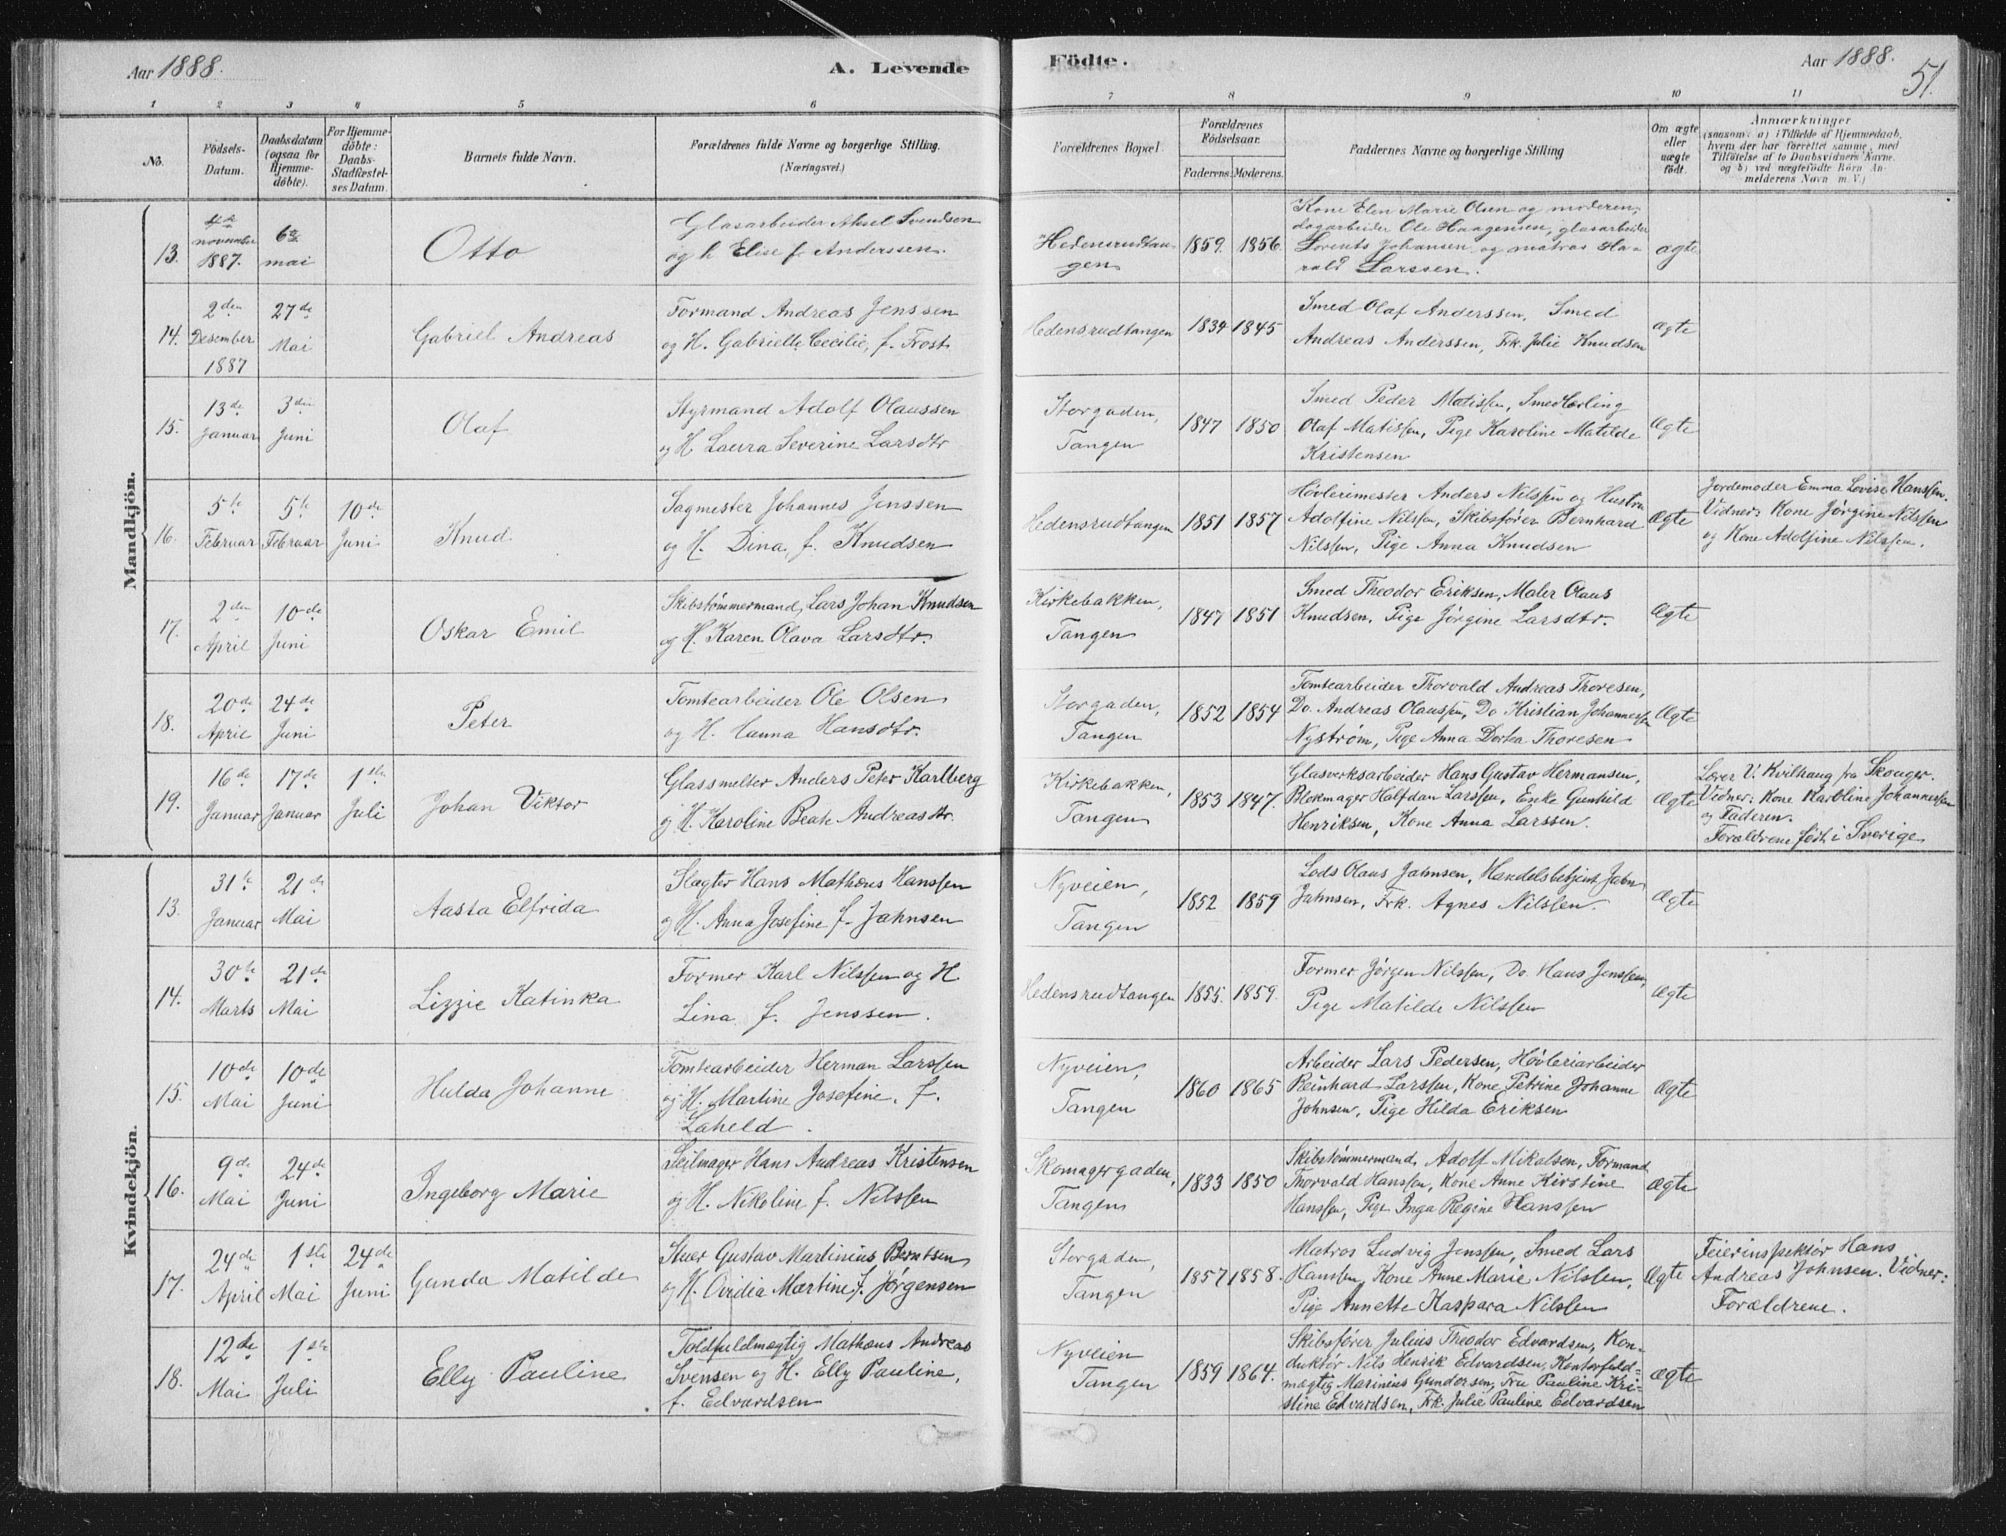 Aar 1888.
A. Levende
Födte.
Aar 1888.
51.
1 2 3 4 5 6 7 8 9 10 11
No.
Födsels-Datum.
Daabsdatum (ogsaa for Hjemmedöbte).
For Hjemmedöbte: Daabs-Stadfæstelses Datum.
Barnets fulde Navn.
Forældrenes fulde Navne og borgerlige Stilling. (Næringsvei.)
Forældrenes Bopæl.
Forældrenes Födselsaar.
Faderens. Moderens.
Faddernes Navne og borgerlige Stilling
Om ægte eller uægte födt.
Anmærkninger
(saasom: a) i Tilfælde af Hjemmedaab,
hvem der har forrettet samme, med
Tilföielse af to Daabsvidners Navne.
og b) ved uægtefödte Börn An-
melderens Navn m. V.)
Mandkjön.
13.
4de november 1887.
6te mai
Otto
Glasarbeider Aksel Svendsen
og h Elise f. Anderssen.
Hedensrudtangen
1859. 1856.
Kone Elen Marie Olsen og moderen,
dagarbeider Ole Haagensen, glasarbeider
Lorents Johansen og matros Ha-
rald Larssen.
ægte
14.
2den Desember 1887
27de Mai
Gabriel Andreas
Formand Andreas Jenssen
og H. Gabrielle Cecilie, f. Frost
Hedensrudtangen
1834 1845
Smed Olaf Anderssen, Smed
Andreas Anderssen, Frk. Julie Knudsen
Ægte
15.
13de Januar
3die Juni
Olaf
Styrmand Adolf Olaussen
og H Laura Severine Larsdtr
Storgaden, Tangen
1847 1850
Smed Peder Matissen, Smedlærling
Olaf Matissen, Pige Karoline Matilde
Kristensen
Ægte
16.
5te Februar
5te Februar
10de Juni
Knud
Sagmester Johannes Jenssen
og H. Dina, f. Knudsen
Hedensrudtangen
1851 1857
Høvlerimester Anders Nilssen og Hustru
Adolfine Nilsen, Skibsfører Bernhard
Nilssen, Pige Anna Knudsen
Ægte
Jordemoder Emma Lovise Hanssen.
Vidner: Kone Jørgine Nilssen
og Kone Adolfine Nilssen.
17.
2den April
10de Juni
Oskar Emil
Skibstømmermand, Lars Johan Knudsen
og H. Karen Olava Larsdtr.
Kirkebakken, Tangen
1847 1851
Smed Theodor Eriksen, Maler Olaus
Knudsen, Pige Jørgine Larsdtr.
Ægte
18.
20de April
24de Juni
Peter
Tomtearbeider Ole Olsen
og H. Hansdtr.
Storgaden, Tangen
1852 1854
Tomtearbeider Thorvald Andreas Thoresen,
Do. Andreas Olaussen, Do Kristian Johannessen
Nystrøm, Pige Anna Dortea Thoresen
Ægte
19.
16de Januar
17de Januar
1ste Juli
Johan Viktor
Glassmelter Anders Peter Karlberg
og H. Karoline Beate Andreasdtr.
Kirkebakken, Tangen
1853 1847.
Glasverksarbeider Hans Gustav Hermansen,
Blokmager Halfdan Larssen, Enke Gunhild
Henriksen, Kone Anna Larssen.
Ægte
Lærer V. Kvilhaug fra Skouger.
Vidner: Kone Karoline Johannessen
og Faderen.
Forældrene født i Sverige
Kvindekjön.
13.
31te Januar
21de Mai
Aasta Elfrida
Slagter Hans Mathæus Hanssen
og H. Anna Josefine f. Jahnsen
Nyveien, Tangen
1852 1859
Lods Olaus Jahnsen, Handelsbetjent Jahn
Jahnsen, Frk. Agnes Nilssen
Ægte
14.
30te Marts
21de Mai
Lizzie Katinka
Former Karl Nilssen og H
Lina f. Jenssen.
Hedensrudtangen
1855. 1859.
Former Jørgen Nilssen, Do. Hans Jenssen,
Pige Matilde Nilssen
Ægte
15.
10de Mai
10de Juni
Hulda Johanne
Tomtearbeider Herman Larssen
og H. Martine Josefine, f.
Zaheld.
Nyveien, Tangen
1860 1865
Arbeider Lars Pedersen, Høvleriarbeider
Reinhard Larssen, Kone Petrine Johanne
Johnsen, Pige Hilda Eriksen
Ægte
16.
9de Mai
24de Juni
Ingeborg Marie
Seilmager Hans Andreas Kristensen
og H. Nikoline f. Nilssen
Skomagergaden, Tangen
1833 1850
Skibstømmermand, Adolf Mikalsen, Formand
Thorvald Hanssen, Kone Anne Kirstine
Hanssen, Pige Inga Regine Hanssen
Ægte
17.
24de April
1ste Mai
24de Juni
Gunda Matilde
Stuer Gustav Martinius Berntsen
og H. Ovidia Martine f. Jørgensen
Storgaden, Tangen
1857 1858.
Matros Ludvig Jenssen, Smed Lars
Hanssen, Kone Anne Marie Nilssen,
Pige Annette Kaspara Nilssen
Ægte
Feierinspektør Hans
Andreas Johnsen. Vidner:
Forældrene.
18.
12de Mai
1ste Juli
Elly Pauline
Toldfuldmægtig Mathæus Andreas
Svensen og H. Elly Pauline,
f. Edvardsen
Nyveien Tangen
1859 1864.
Skibsfører Julius Theodor Edvardsen, Kon-
duktør Nils Henrik Edvardsen, Kontorfuld-
mægtig Marinius Gundersen, Fru Pauline Kri-
stine Edvardsen, Frk. Julie Pauline Edvardsen
Ægte